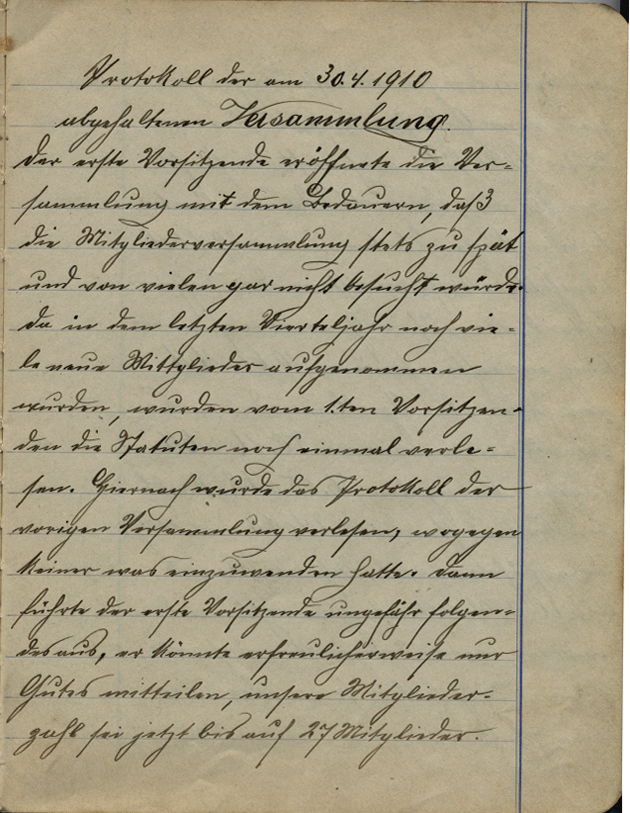 Protokoll der am 30.4.1910
abgehaltenen Versammlung.
Der erste Vorsitzende eröffnete die Ver-
sammlung mit dem Bedauern, daß
die Mitgliederversammlung stets zu spät
und von vielen gar nicht besucht würde.
Da in dem letzten Vierteljahr noch vie-
le neue Mittglieder aufgenommen
wurden, wurden vom 1.ten Vorsitzen-
den die Statuten noch einmal verle-
sen. Hiernach wurde das Protokoll der
vorigen Versammlung verlesen, wogegen
keiner was einzuwenden hatte. Dann
führte der erste Vorsitzende ungefähr folgen-
des aus, er könnte erfreulicherweise nur
Gutes mitteilen, unsere Mitglieder-
zahl sei jetzt bis auf 27 Mitglieder.